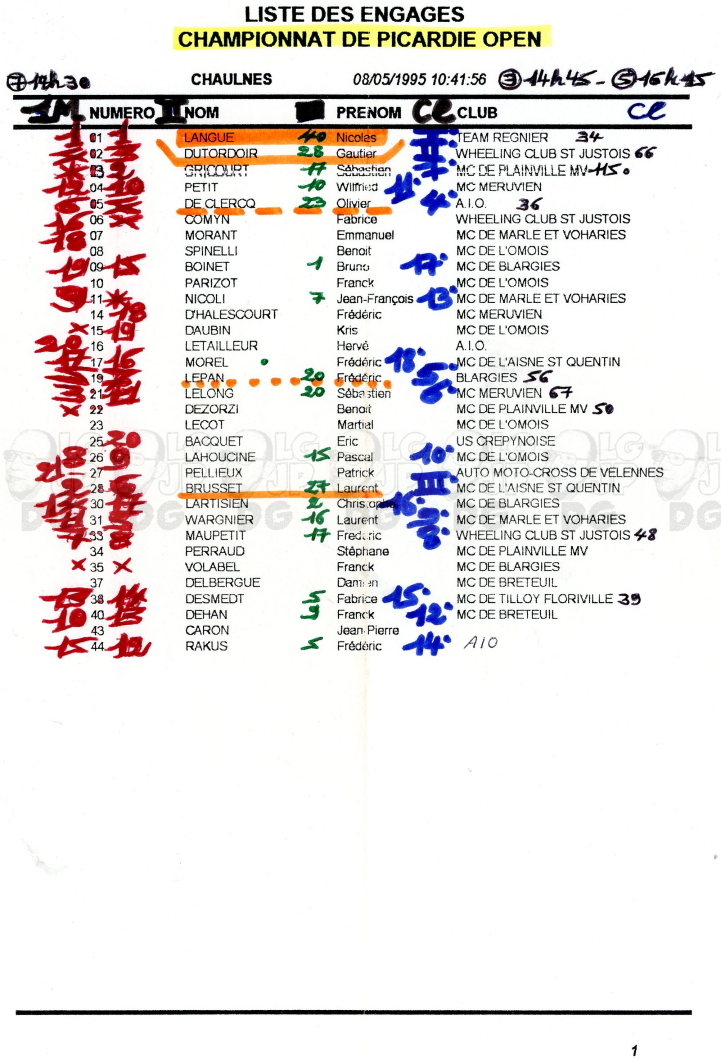 LISTE DES ENGAGES
CHAMPIONNAT DE PICARDIE OPEN
CHAULNES 08/05/1995 10:41:56 ③ 14h45 - ⑤ 16h15
1M NUMERO II NOM PRENOM Cl CLUB Cl
1 01 1 LANGUE 40 Nicolas I TEAM REGNIER 34
02 DUTORDOIR 28 Gautier II WHEELING CLUB ST JUSTOIS 66
03 GRICOURT 17 Sébastien MC DE PLAINVILLE MV
04 PETIT 10 Wilfried 11 MC MERUVIEN
05 DE CLERCQ 23 Olivier 4 A.I.O. 36
06 X COMYN Fabrice WHEELING CLUB ST JUSTOIS
07 MORANT Emmanuel MC DE MARLE ET VOHARIES
08 SPINELLI Benoit MC DE L'OMOIS
19 09 15 BOINET 1 Bruno 17 MC DE BLARGIES
10 PARIZOT Franck MC DE L'OMOIS
11 NICOLI 7 Jean-François 13 MC DE MARLE ET VOHARIES
14 18 D'HALESCOURT Frédéric MC MERUVIEN
X 15 19 DAUBIN Kris MC DE L'OMOIS
16 LETAILLEUR Hervé A.I.O.
17 17 16 MOREL Frédéric 18 MC DE L'AISNE ST QUENTIN
19 LEPAN 20 Frédéric 5 BLARGIES 56
21 LELONG 20 Sébastien 6 MC MERUVIEN 67
X 22 DEZORZI Benoit MC DE PLAINVILLE MV 50
23 LECOT Martial MC DE L'OMOIS
25 20 BACQUET Eric US CREPYNOISE
26 LAHOUCINE 15 Pascal 10 MC DE L'OMOIS
27 PELLIEUX Patrick AUTO MOTO-CROSS DE VELENNES
28 BRUSSET 27 Laurent III MC DE L'AISNE ST QUENTIN
30 LARTISIEN 2 Christophe 16 MC DE BLARGIES
31 WARGNIER 16 Laurent MC DE MARLE ET VOHARIES
33 8 MAUPETIT 17 Frederic WHEELING CLUB ST JUSTOIS 48
34 PERRAUD Stéphane MC DE PLAINVILLE MV
X 35 X VOLABEL Franck MC DE BLARGIES
37 DELBERGUE Damien MC DE BRETEUIL
13 38 14 DESMEDT 5 Fabrice 15 MC DE TILLOY FLORIVILLE 39
10 40 13 DEHAN 9 Franck 12 MC DE BRETEUIL
43 CARON Jean-Pierre
15 44 12 RAKUS 5 Frédéric 14 AIO
1